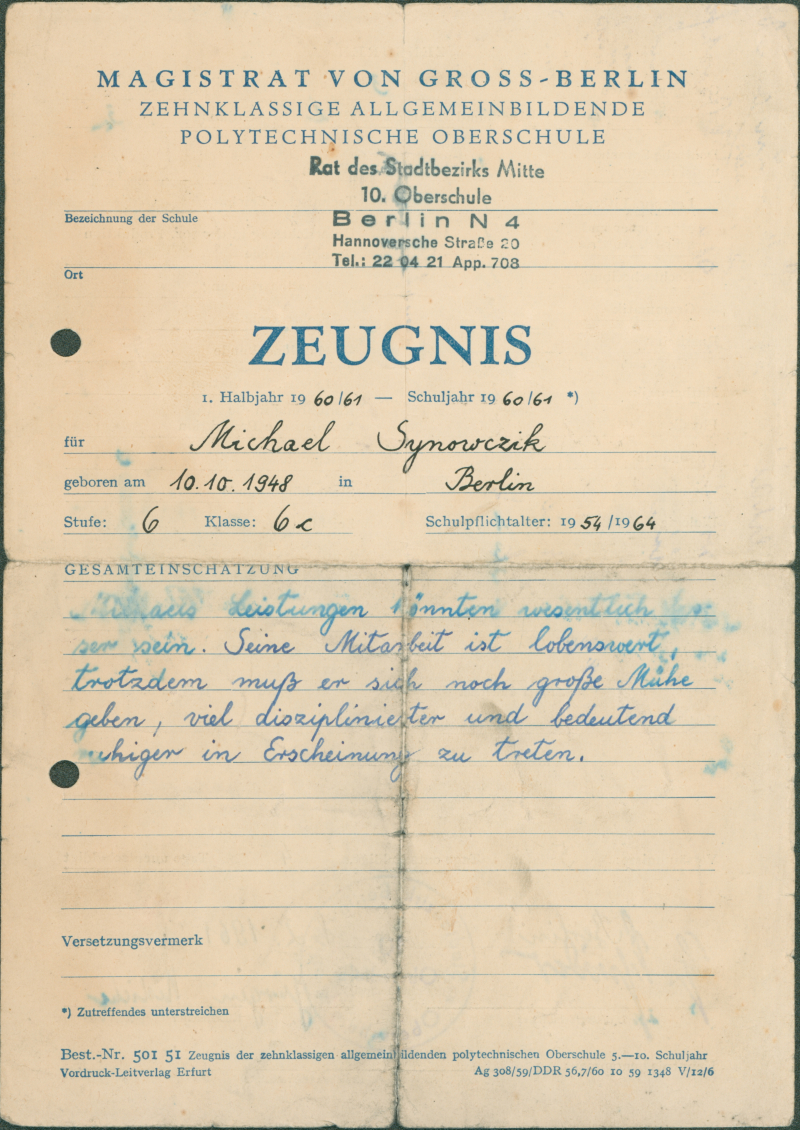 MAGISTRAT VON GROSS-BERLIN
ZEHNKLASSIGE ALLGEMEINBILDENDE
POLYTECHNISCHE OBERSCHULE
Rat des Stadtbezirks Mitte
10. Oberschule
Bezeichnung der Schule
Berlin N 4
Hannoversche Straße 20
Tel.: 22 04 21 App. 708
Ort
ZEUGNIS
1. Halbjahr 1960/61 — Schuljahr 1960/61 *)
für Michael Synowczik
geboren am 10.10.1948 in Berlin
Stufe: 6 Klasse: 6c Schulpflichtalter: 1954/1964
GESAMTEINSCHÄTZUNG
Michaels Leistungen könnten wesentlich bes-
ser sein. Seine Mitarbeit ist lobenswert,
trotzdem muß er sich noch große Mühe
geben, viel disziplinierter und bedeutend
ruhiger in Erscheinung zu treten.
Versetzungsvermerk
*) Zutreffendes unterstreichen
Best.-Nr. 501 51 Zeugnis der zehnklassigen allgemeinbildenden polytechnischen Oberschule 5.—10. Schuljahr
Vordruck-Leitverlag Erfurt Ag 308/59/DDR 56,7/60 10 59 1348 V/12/6